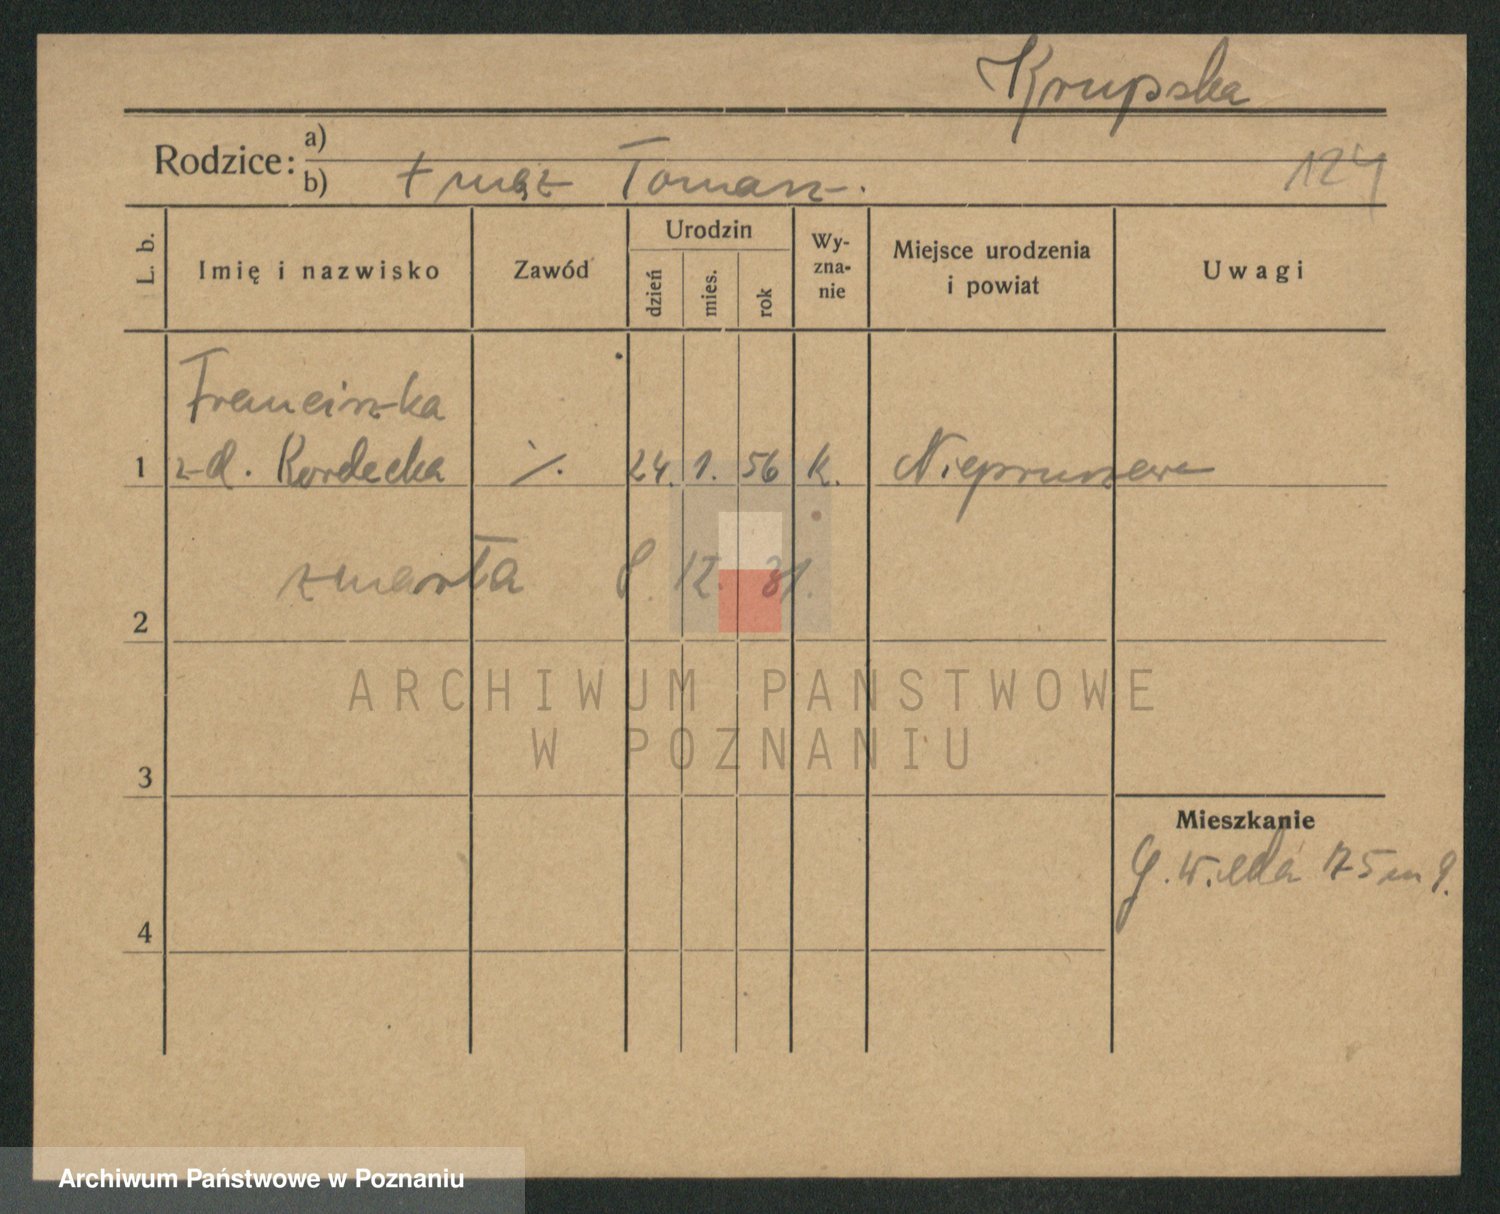 Krupska
Rodzice: a)
b) † mąż Tomasz. 124
L. b. Imię i nazwisko Zawód Urodzin dzień mies. rok Wy-zna-nie Miejsce urodzenia i powiat Uwagi
Franciszka
1 z d. Kordecka ./. 24. 1. 56 K. Niepruszewo
zmarła 8. 12. 31.
2
ARCHIWUM PANSTWOWE
W POZNANIU
3
Mieszkanie
G. Wilda 75 m 9.
4
Archiwum Państwowe w Poznaniu